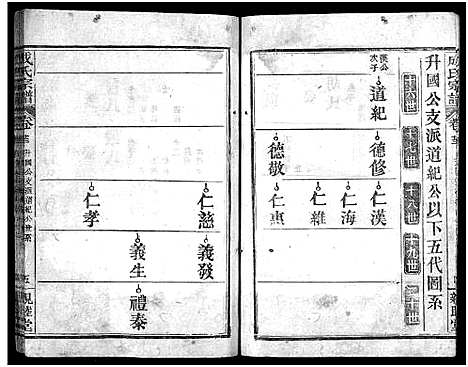 成氏宗譜
升國公支派道紀公以下五代圖系
十六世
十七世
十八世
十九世
二十世
漢公次子
道紀
德修
德敬
仁漢
仁海
仁維
仁惠
成氏宗譜
升國公支派道紀公世系
五
親睦堂
仁慈
仁孝
義發
義生
禮泰